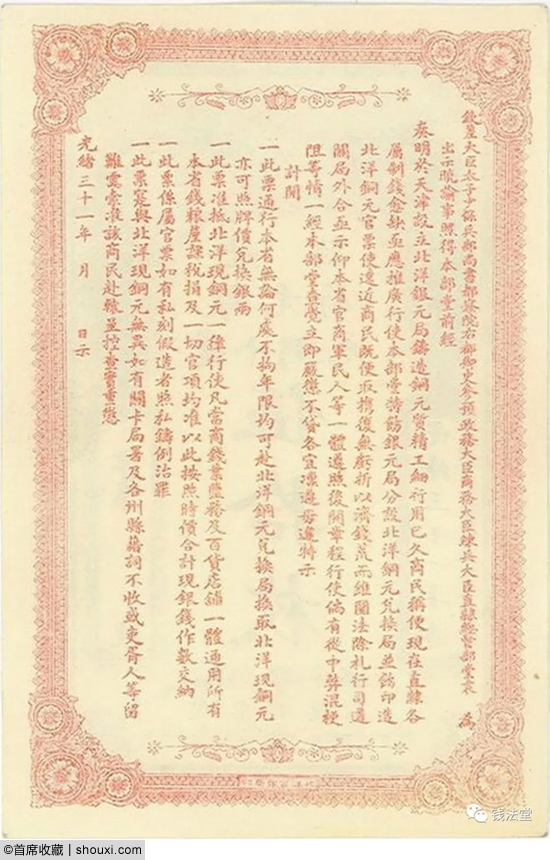 欽差大臣太子少保兵部尚書都察院右都御史參預政務大臣商務大臣練兵大臣直隸總督部堂袁 為
出示曉諭事照得本部堂前經
奏明於天津設立北洋銀元局鑄造銅元質精工細行用已久商民稱便現在直隸各
屬制錢愈缺亟應推廣行使本部堂特飭銀元局分設北洋銅元兌換局並飭印造
北洋銅元官票使遠近商民既便取攜復無虧折以濟錢荒而維圜法除札行司道
關局外合亟示仰本省官商軍民人等一體遵照後開章程行使倘有從中弊混梗
阻等情一經本部堂查覺立即嚴懲不貸各宜凜遵毋違特示
計開
一此票通行本省無論何處不拘年限均可赴北洋銅元兌換局換取北洋現銅元
亦可照牌價兌換銀兩
一此票准抵北洋現銅元一律行使凡當商錢業鹽務及百貨店舖一體通用所有
本省錢糧厘課稅捐及一切官項均准以此按照時價合計現銀錢作數交納
一此票係屬官票如有私刻假造者照私鑄例治罪
一此票實與北洋現銅元無異如有關卡局署及各州縣藉詞不收或吏胥人等留
難需索准該商民赴轅呈控查實重懲
光緒三十一年 月 日示
钱法堂
©首席收藏 | shouxi.com